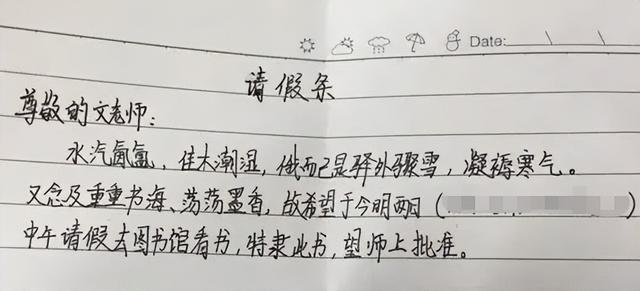 Date:
请假条
尊敬的文老师：
水汽氤氲，佳木潮湿，俄而已是驿外骤雪，凝褥寒气。
又念及重重书海、荡荡墨香，故希望于今明两日（ ）
中午请假去图书馆看书，特隶此书，望师上批准。